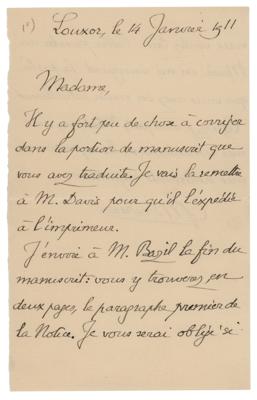 (1)
Louxor, le 14 Janvier 1911
Madame,
Il y a fort peu de chose à corriger
dans la portion de manuscrit que
vous avez traduite. Je vais la remettre
à M. Davis pour qu'il l'expédie
à l'imprimeur.
J'envoie à M. Bazil la fin du
manuscrit: vous y trouverez, en
deux pages, le paragraphe premier de
la Notice. Je vous serai obligé si